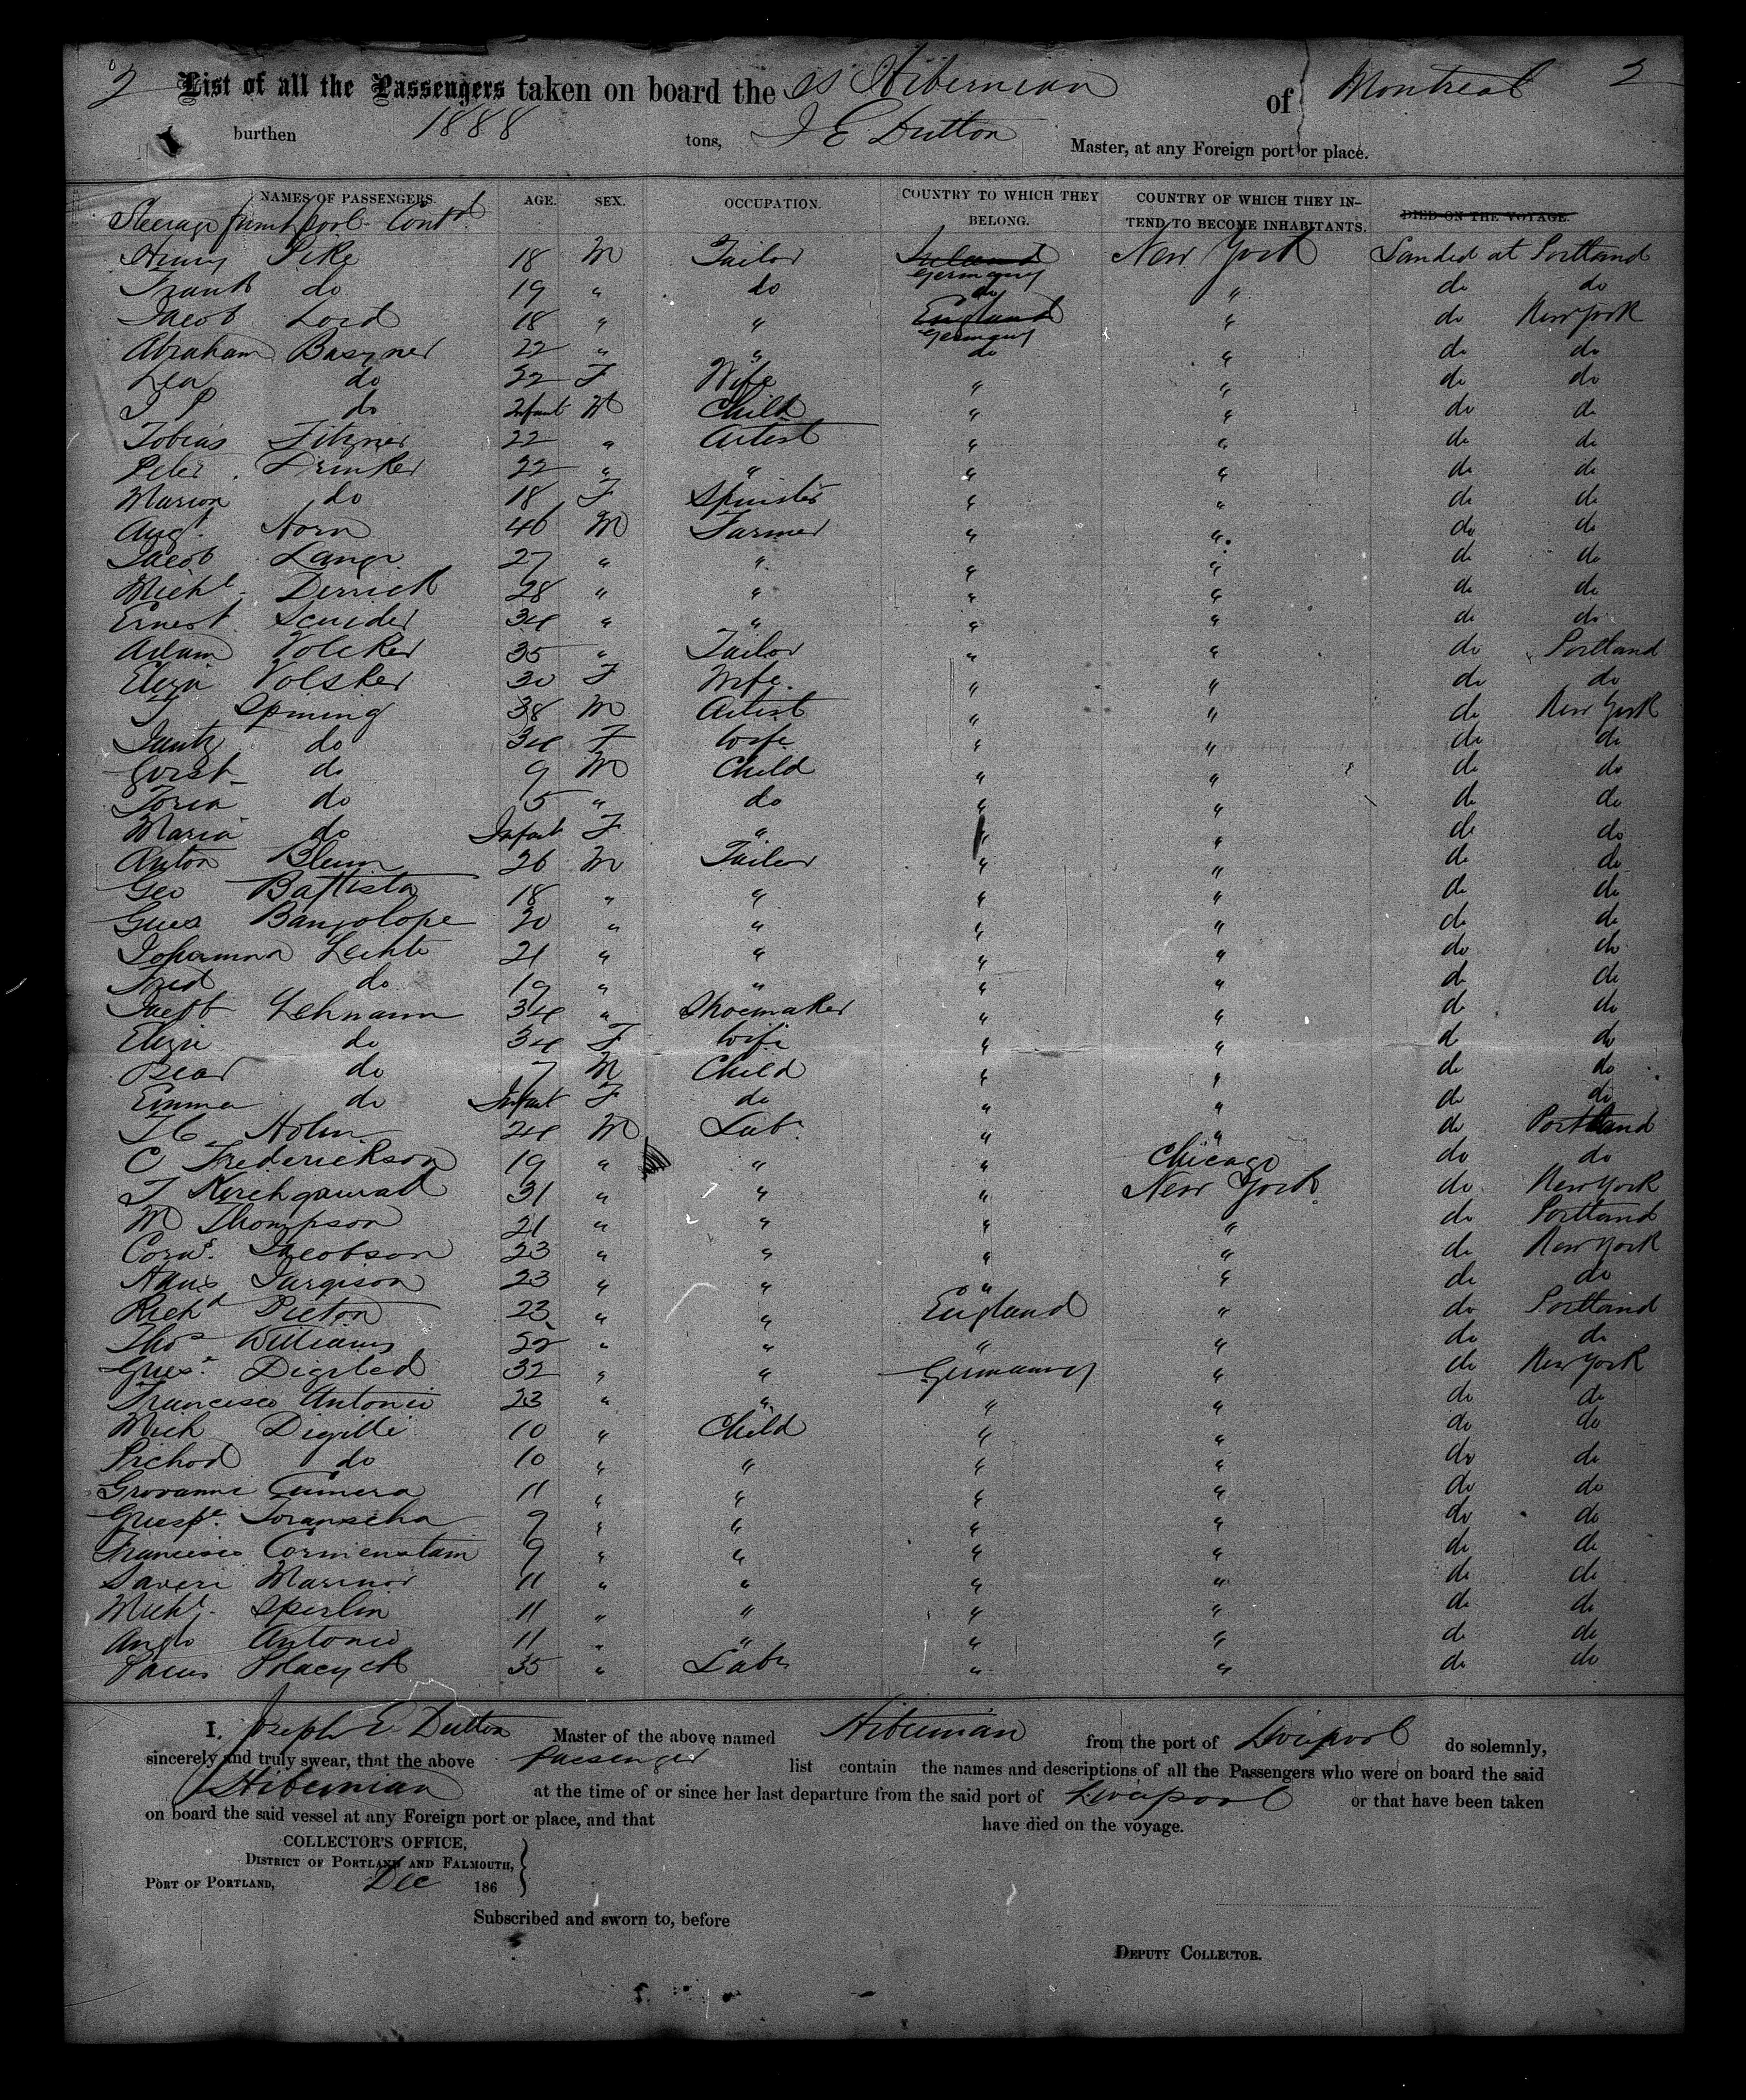 2 List of all the Passengers taken on board the SS Hibernian of Montreal 2
burthen 1888 tons, J E Dutton Master, at any Foreign port or place.
NAMES OF PASSENGERS. AGE. SEX. OCCUPATION. COUNTRY TO WHICH THEY BELONG. COUNTRY OF WHICH THEY INTEND TO BECOME INHABITANTS. DIED ON THE VOYAGE.
Steerage from Lpool Contd
Henry Pike 18 M Tailor Ireland Germany New York Landed at Portland
Frank do 19 " do do " do do
Jacob Lord 18 " " England Germany " do New York
Abraham Basyner 22 " " do " do do
Lea do 22 F Wife " " do do
J P do Infant M Child " " do do
Tobias Fitzner 22 " Artist " " do do
Peter Drinker 22 " " " " do do
Marion do 18 F Spinster " " do do
Augt. Horn 46 M Farmer " " do do
Jacob Lange 27 " " " " do do
Michl. Derrick 28 " " " " do do
Ernest Scuider 34 " " " " do do
Adam Volcker 35 " Tailor " " do Portland
Eliza Volsker 30 F Wife " " do do
Spining 38 M Artist " " do New York
do 34 F Wife " " do do
do 9 M Child " " do do
Toria do 5 " do " " do do
Maria do Infant F " " " do do
Anton Blum 26 M Tailor " " do do
Geo Baptista 18 " " " " do do
Gues Bangolope 30 " " " " do do
Johamna Lechte 21 " " " " do do
Fred do 19 " " " " do do
Jacob Lehnann 34 " Shoemaker " " do do
Eliza do 34 F Wife " " do do
do 7 M Child " " do do
Emma do Infant F do " " do do
Holm 24 M Labr " " do Portland
C Frederickson 19 " " " Chicago do do
31 " " " New York do New York
M Thompson 21 " " " " do Portland
Corns. Jacobson 23 " " " " do New York
Hans Jurgison 23 " " " " do do
Richd Picton 23 " " England " do Portland
Thos Williams 22 " " " " do do
Gues. Digited 32 " " Germany " do New York
Francesco Antonio 23 " " " " do do
Mich Digilli 10 " Child " " do do
Prichod do 10 " " " " do do
Grovanni Cumera 11 " " " " do do
Guespe. Toranscha 9 " " " " do do
Francisco Cormenstain 9 " " " " do do
Saveri Marinor 11 " " " " do do
Michl. Sperlin 11 " " " " do do
Anglo Antonio 11 " " " " do do
Polacyck 35 " Labr " " do do
I, Joseph E Dutton Master of the above named Hibernian from the port of Liverpool do solemnly,
sincerely and truly swear, that the above Passenger list contain the names and descriptions of all the Passengers who were on board the said
Hibernian at the time of or since her last departure from the said port of Liverpool or that have been taken
on board the said vessel at any Foreign port or place, and that have died on the voyage.
COLLECTOR'S OFFICE,
DISTRICT OF PORTLAND AND FALMOUTH,
PORT OF PORTLAND, Dec 186
Subscribed and sworn to, before
DEPUTY COLLECTOR.